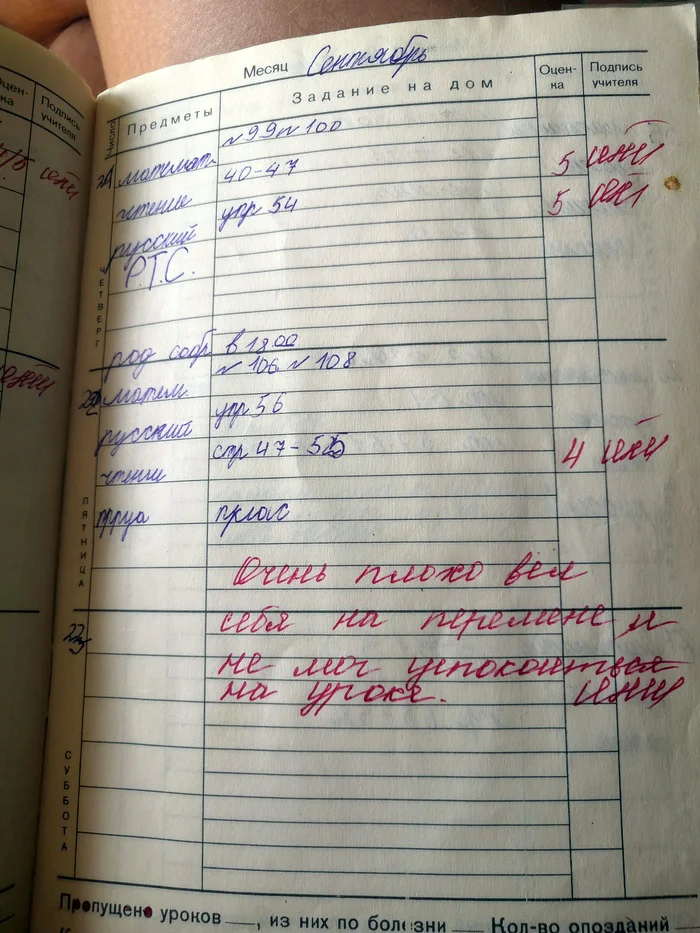 Оцен-
ка
Подпись
учителя
Месяц Сентябрь
Число
Предметы
Задание на дом
Оцен-
ка
Подпись
учителя
ЧЕТВЕРГ
№99 № 100
21 математ. 40-47 5
чтение упр 54 5
русский
Р.Т.С.
род собр. в 18 00
ПЯТНИЦА
№ 106 № 108
22 матем. упр 56
русский стр 47-55 4
чтение
труд плас
Очень плохо вел
СУББОТА
23
себя на перемене и
не мог успокоиться
на уроке.
Пропущено уроков , из них по болезни Кол-во опозданий